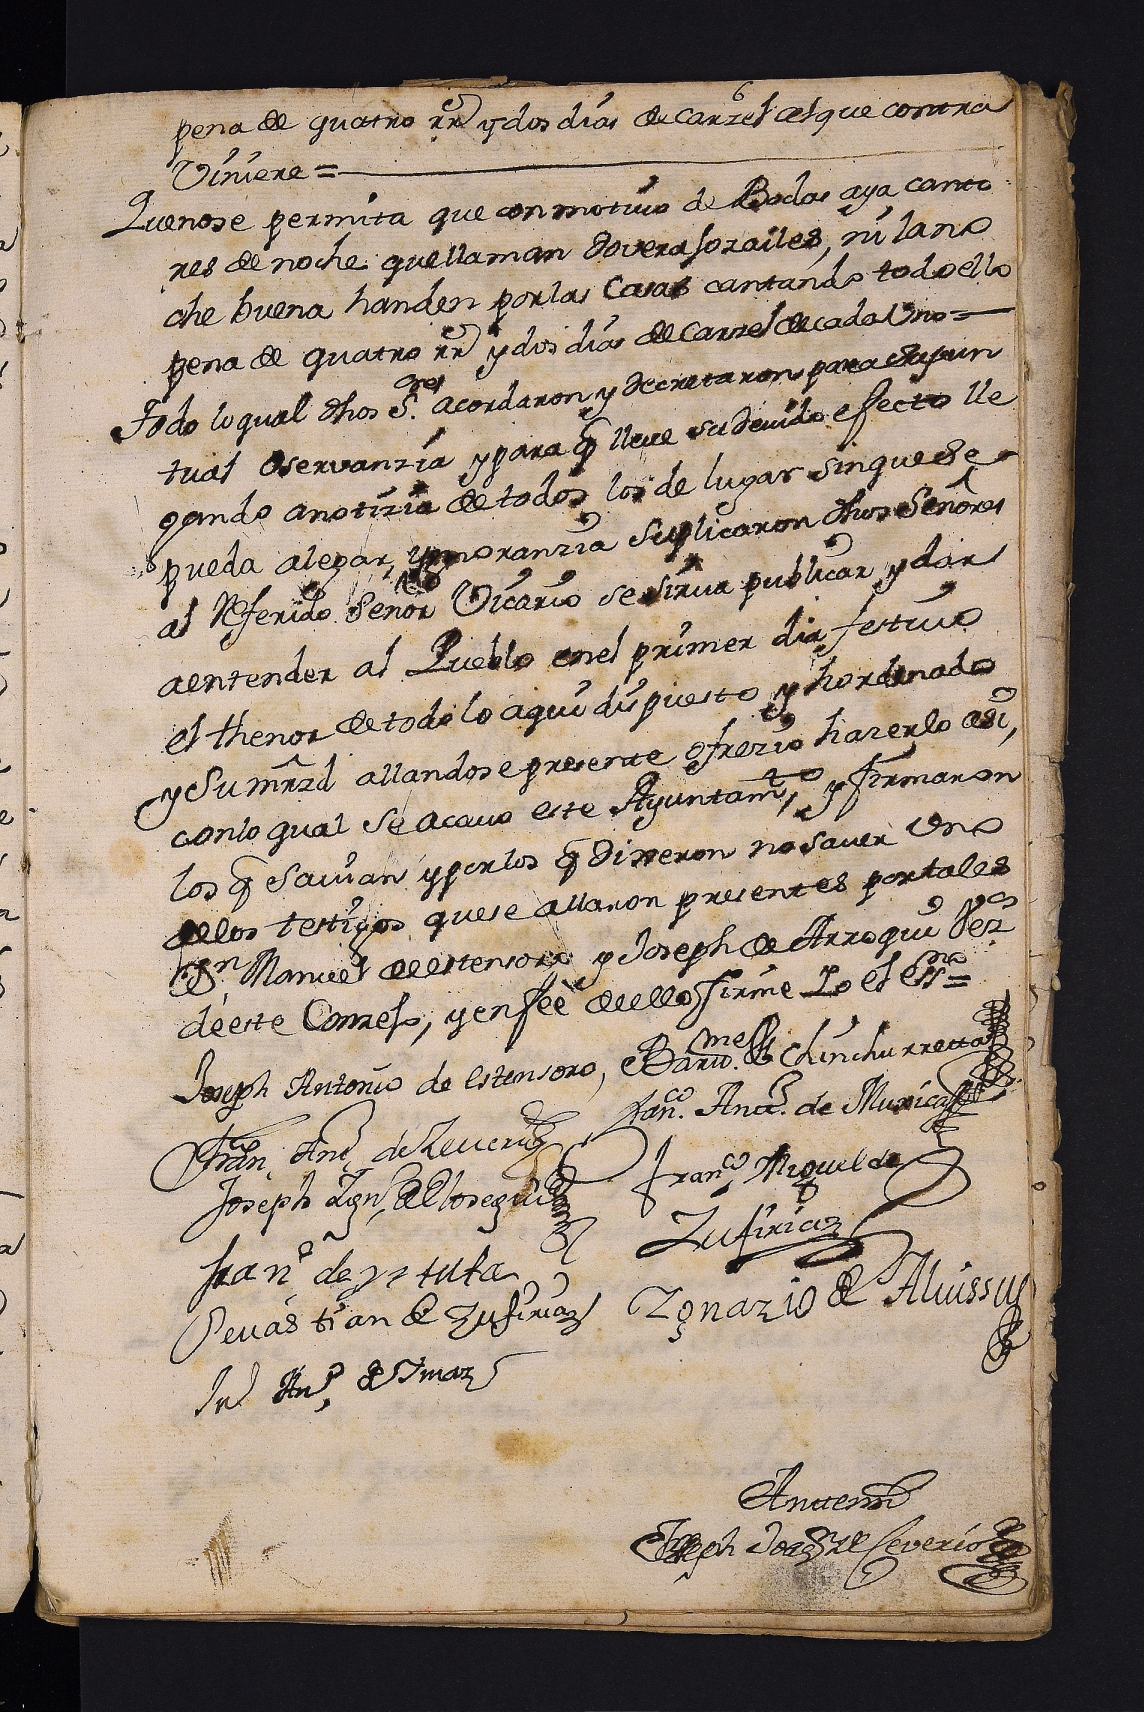 6
pena de quatro rrˢ y dos dias de carzel al que contra
Viniere =
Que nose permita que con motivo de Bodas aya canto
res de noche que llaman doverasorailes, ni la no
che buena handen por las Casas cantando todo ello
pena de quatro rrˢ y dos dias de Carzel de cada Uno =
Todo lo qual dhos S.ʳᵉˢ acordaron y decretaron para su pun
tual oservanzia y para q̃ lleve su devido efecto lle
gando a notizia de todos los de lugar sin que se
pueda alegar, ygnoranzia suplicaron dhos Señores
al Referido Señor Vicario se sirva publicar y dar
a entender al Pueblo en el primer dia festivo
el thenor de todo lo aqui dispuesto y hordenado
y Su mrzd allandose presente ofrezio hazerlo asi,
con lo qual se acavo este Ayuntamᵗᵒ, y firmaron
los q̃ savian y por los q̃ dixeron no saver Uno
de los testigos que se allaron presentes por tales
Manuel de estensoro y Joseph de Arroqui Vezᵒˢ
de este Conzejo, y en feè de ello firme Yo el Essⁿᵒ =
Joseph Antonio de estensoro, Barᵐᵉ de Chinchurreta
Franᶜᵒ. Antᵒ. de Muxica
Fran Antᵒ de Zeverio
Joseph Ygnᵒ de Elosegui
Franᶜᵒ Miguel de
Zufiria
Franᶜᵒ de
Sevastian de Zufiria
Ygnazio de Aluissu
Juº Anᵗᵒ de Ymaz
Antemi
Joseph de Zeverio